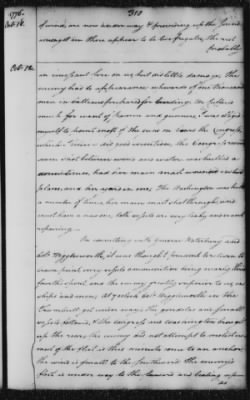 1776.
Octr. 12.
310
of wind, are now under way & proceeding up the
amongst em there appears to be two frigates, the rest
Octr. 12
an incessant fire on us, but did little damage. The
enemy had to appearance upwards of one thousand
men in batteaus prepared for boarding. We suffered
much for want of seamen and gunners. I was obliged
myself to point most of the guns on board the Congress
which I believe did good execution, the Congress received
seven shot between wind and water, was hulled a
dozen times, had her main mast wounded in two
places, and her yard in one. The Washington was hulled
a number of times, her main mast shot through, and
must have a new one, both vessels are very leaky and want
repairing.
On consulting with General Waterbury and
Colo. Wigglesworth, it was thought prudent to return to
crown point, every vessels ammunition being nearly three
fourths spent, and the enemy greatly superior to us in
ships and men, at 7 oClock Colo. Wigglesworth in the
Trumbull got under way, the gondolas and small
vessels followed, & the Congress and Washington brought
up the rear, the enemy did not attempt to molest us
most of the fleet is this minute come to an anchor
the wind is small to the Southward. The enemy's
fleet is under way to the Leeward and beating up
as